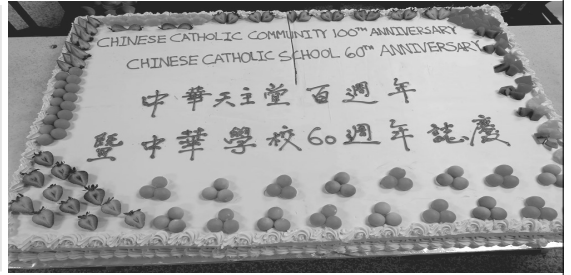 CHINESE CATHOLIC COMMUNITY 100TH ANNIVERSARY
CHINESE CATHOLIC SCHOOL 60TH ANNIVERSARY
中華天主堂百週年
暨中華學校60週年誌慶